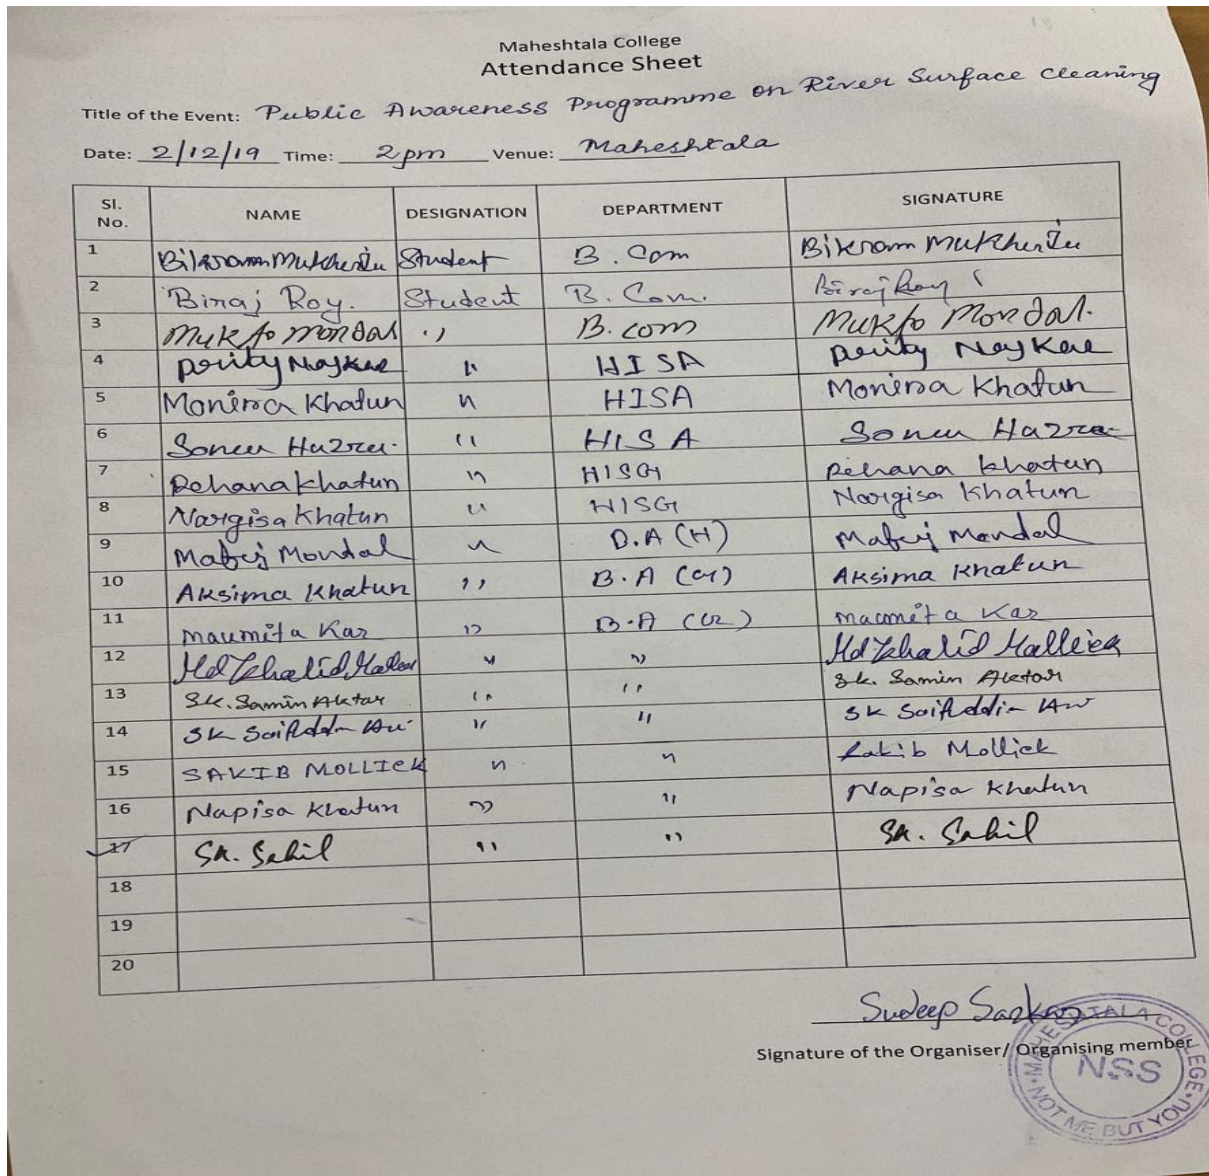 Maheshtala College
Attendance Sheet
Title of the Event: Public Awareness Programme on River Surface Cleaning
Date: 2/12/19 Time: 2pm Venue: Maheshtala
Sl. No. NAME DESIGNATION DEPARTMENT SIGNATURE
1 Bikram Mukherjee Student B. Com Bikram Mukherjee
2 Biraj Roy. Student B. Com. Biraj Roy
3 Mukto Mondal " B. com Mukto Mondal.
4 Naskar " HISA Naskar
5 Monirra Khatun " HISA Monirra Khatun
6 Sonu Hazra. " HISA Sonu Hazra
7 Rehana khatun " HISG Rehana khatun
8 Nargisa Khatun " HISG Nargisa Khatun
9 Mondal " B.A (H) Mondal
10 Aksima Khatun " B.A (G) Aksima Khatun
11 Maumita Kar " B.A (G) Maumita Kar
12 Md Khalid Mallick " " Md Khalid Mallick
13 Sk. Samin Aktar " " Sk. Samin Aktar
14 Sk Saifuddin " " Sk Saifuddin
15 SAKIB MOLLICK " " Sakib Mollick
16 Napisa Khatun " " Napisa Khatun
17 Sk. Sahil " " Sk. Sahil
18
19
20
Sudeep Sarkar
Signature of the Organiser/ Organising member
MAHESHTALA COLLEGE
NSS
NOT ME BUT YOU